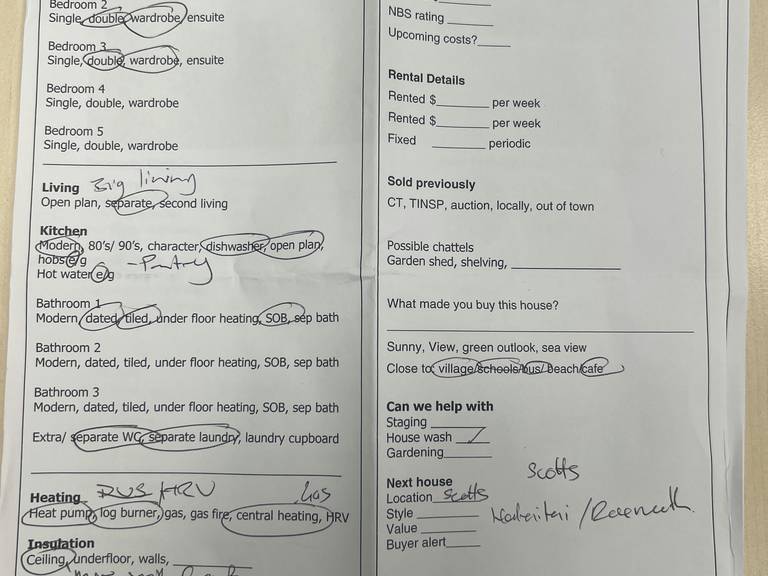 Bedroom 2
Single, double, wardrobe, ensuite
Bedroom 3
Single, double, wardrobe, ensuite
Bedroom 4
Single, double, wardrobe
Bedroom 5
Single, double, wardrobe
Living Big living
Open plan, separate, second living
Kitchen
Modern, 80's/ 90's, character, dishwasher, open plan,
hobs e/g
Hot water e/g - Pantry
Bathroom 1
Modern, dated, tiled, under floor heating, SOB, sep bath
Bathroom 2
Modern, dated, tiled, under floor heating, SOB, sep bath
Bathroom 3
Modern, dated, tiled, under floor heating, SOB, sep bath
Extra/ separate WC, separate laundry, laundry cupboard
Heating DVS/HRV gas
Heat pump, log burner, gas, gas fire, central heating, HRV
Insulation
Ceiling, underfloor, walls, ________
NBS rating ______
Upcoming costs?____
Rental Details
Rented $________ per week
Rented $________ per week
Fixed ________ periodic
Sold previously
CT, TINSP, auction, locally, out of town
Possible chattels
Garden shed, shelving, ____________
What made you buy this house?
Sunny, View, green outlook, sea view
Close to: village/schools/bus/ beach/cafe
Can we help with
Staging ______
House wash ____
Gardening______
Next house
Scotts
Location Scotts
Style ________
Value ________
Buyer alert_____